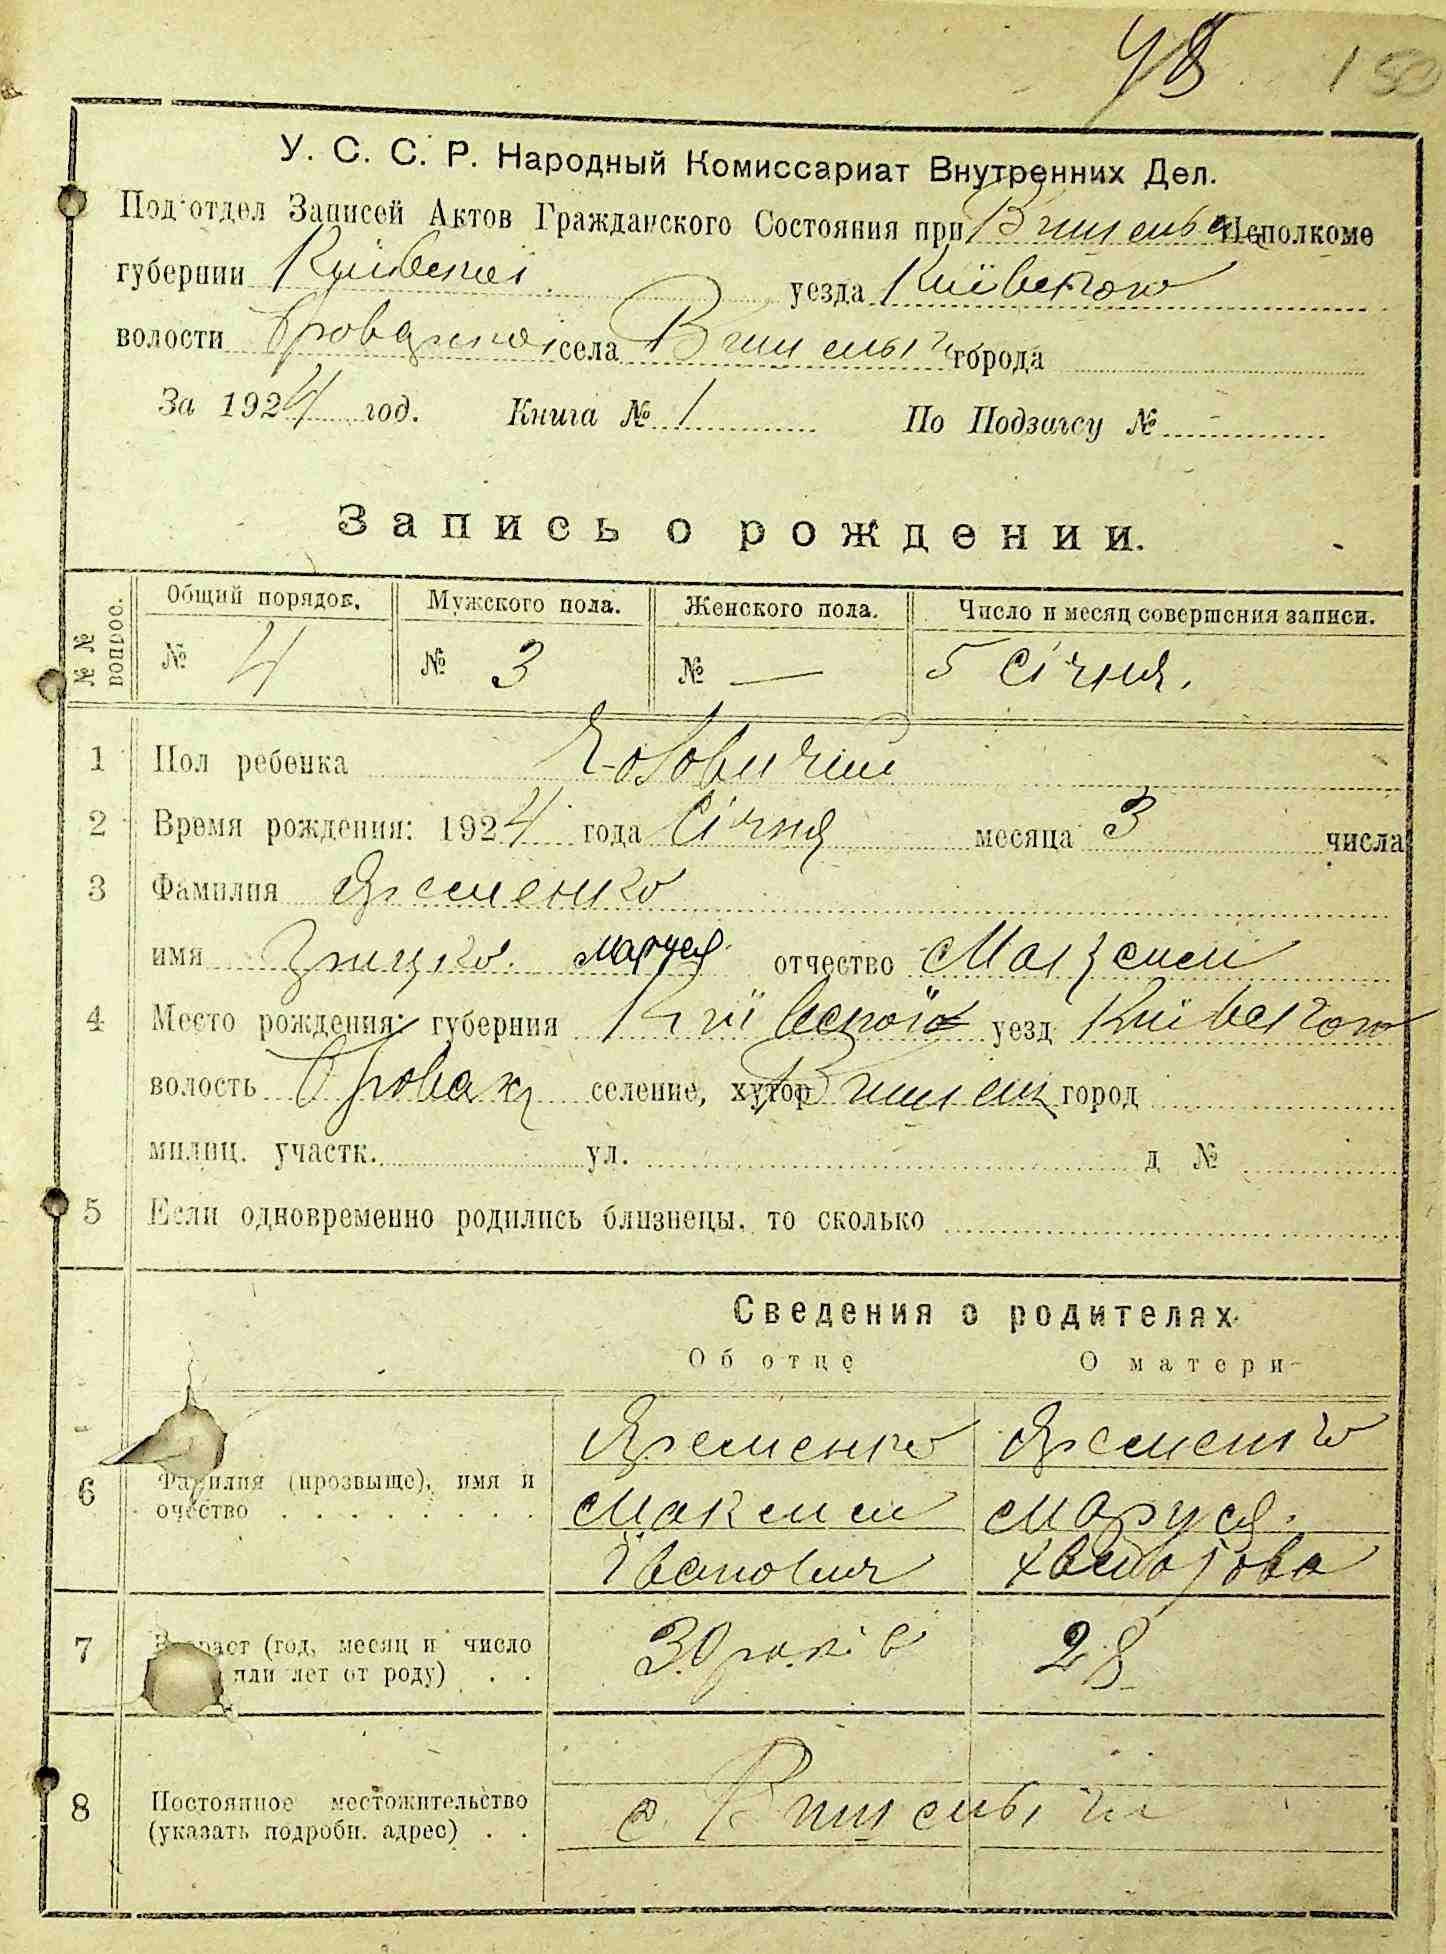 98 150
У. С. С. Р. Народный Комиссариат Внутренних Дел.
Под'отдел Записей Актов Гражданского Состояния при Исполкоме
губернии Київської уезда Київського
волости села города
За 1924 год. Книга № 1 По Подзагсу №
Запись о рождении.
№ № вопрос. Общий порядок. Мужского пола. Женского пола. Число и месяц совершения записи.
№ 4 № 3 № — 5 Січня.
1 Пол ребенка Чоловичий
2 Время рождения: 1924 года Січня месяца 3 числа
3 Фамилия Яременко
имя Маруся отчество Максим
4 Место рождения: губерния Київської уезд Київського
волость селение, хутор город
милиц. участк. ул. д №
5 Если одновременно родились близнецы, то сколько
Сведения о родителях
Об отце О матери
Яременко Яременко
6 Фамилия (прозвище), имя и
очество Максим Маруся.
Іванович
7 Возраст (год, месяц и число 30 років 28
или лет от роду)
8 Постоянное местожительство с.
(указать подробн. адрес)